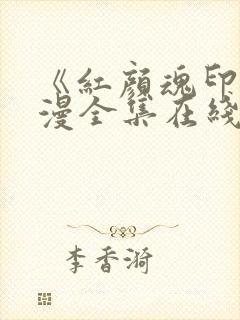 《紅顏魂印
漫全集在綫
李香漪